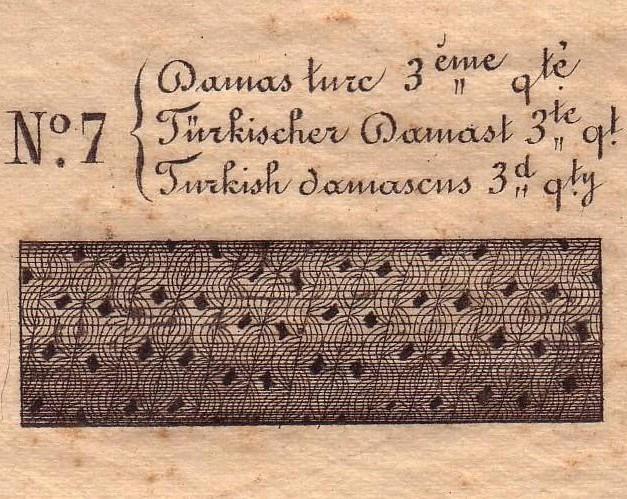 Damas turc 3ème qté
No. 7
Türkischer Damast 3te qt.
Turkish damascus 3d qty